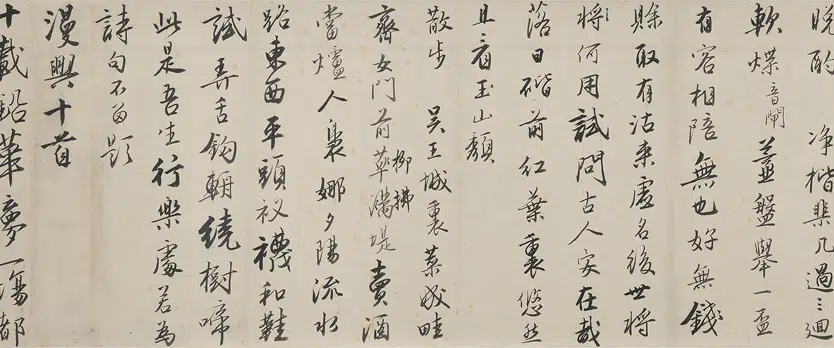 晚酌 净揩棐几過三廻
軟煠音閘薑盤舉一盃
有客相陪無也好無錢
賖取有沽来虚名後世将
将何用試問古人家在哉
落日階前紅葉裏悠然
且看玉山頹
散步 吴王城裏菜成畦
齊女門前草满堤賣酒
柳拂
當爐人裊娜夕陽流水
路東西平頭衩襪和鞋
試弄舌鈎輈繞樹啼
此是吾生行樂處若為
詩句不留題
漫興十首
十載鉛華夢一場都